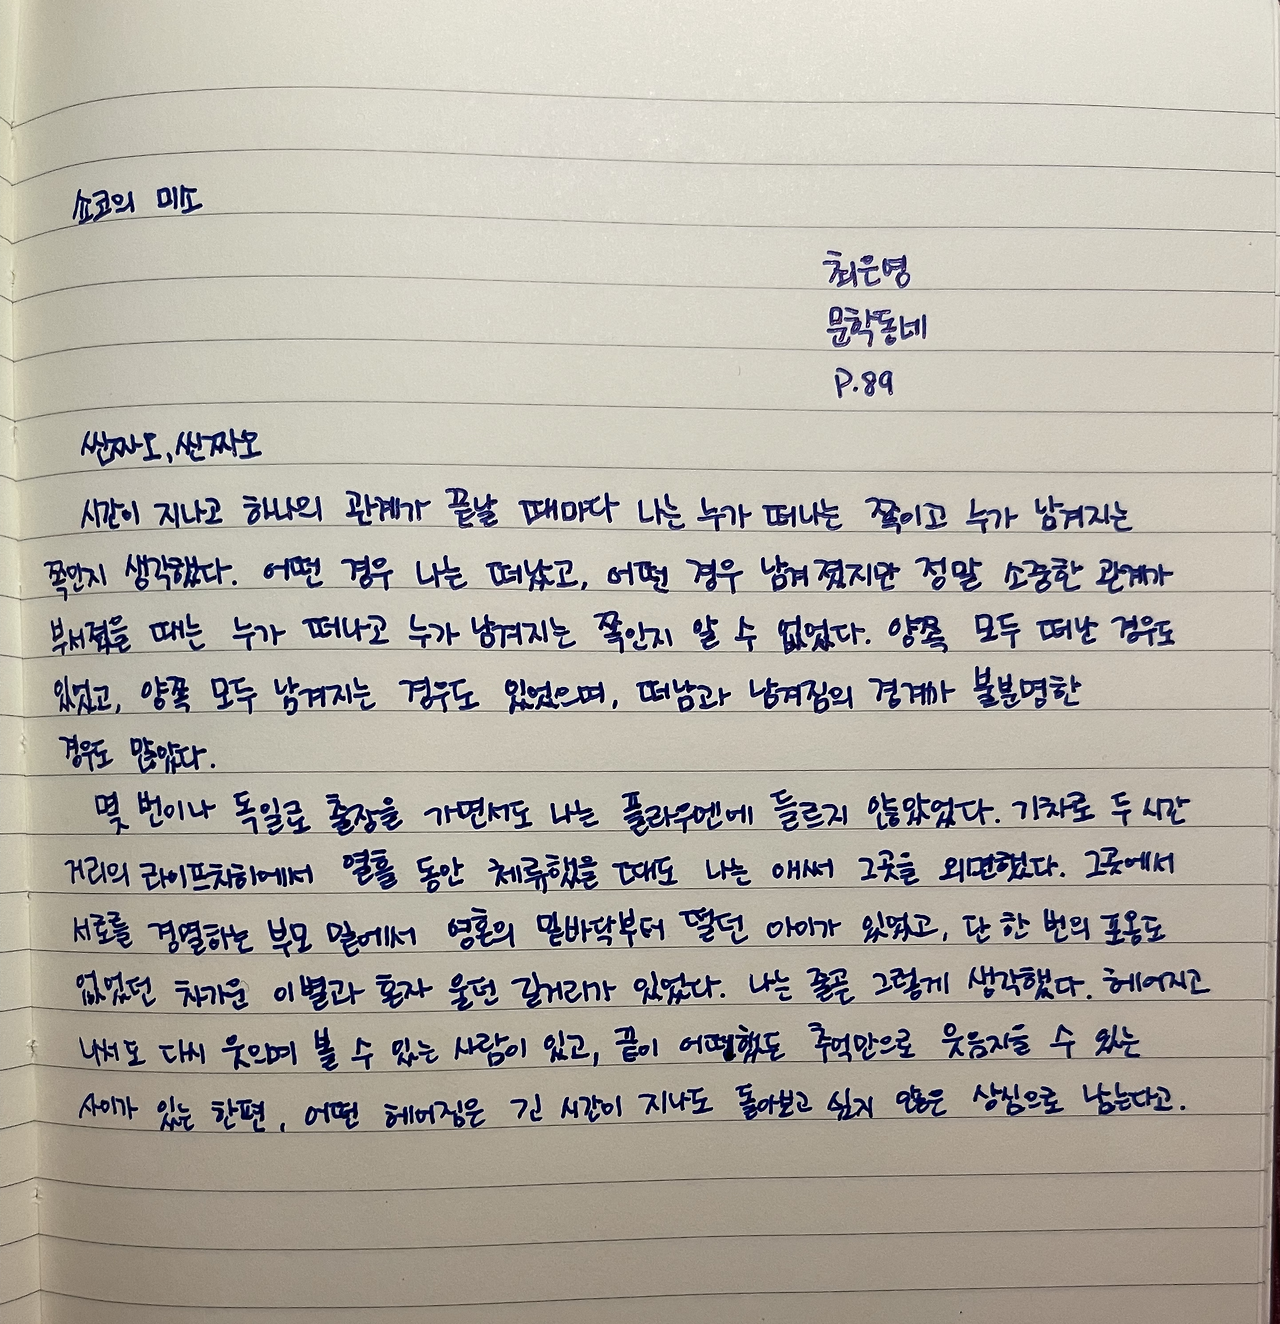 쇼코의 미소
최은영
문학동네
P.89
씬짜오, 씬짜오
시간이 지나고 하나의 관계가 끝날 때마다 나는 누가 떠나는 쪽이고 누가 남겨지는
쪽인지 생각했다. 어떤 경우 나는 떠났고, 어떤 경우 남겨졌지만 정말 소중한 관계가
부서졌을 때는 누가 떠나고 누가 남겨지는 쪽인지 알 수 없었다. 양쪽 모두 떠난 경우도
있었고, 양쪽 모두 남겨지는 경우도 있었으며, 떠남과 남겨짐의 경계가 불분명한
경우도 많았다.
몇 번이나 독일로 출장을 가면서도 나는 플라우엔에 들르지 않았었다. 기차로 두 시간
거리의 라이프치히에서 열흘 동안 체류했을 때도 나는 애써 그곳을 외면했다. 그곳에서
서로를 경멸하는 부모 밑에서 영혼의 밑바닥부터 떨던 아이가 있었고, 단 한 번의 포옹도
없었던 차가운 이별과 혼자 울던 길거리가 있었다. 나는 줄곧 그렇게 생각했다. 헤어지고
나서도 다시 웃으며 볼 수 있는 사람이 있고, 끝이 어떠했든 추억만으로 웃음지을 수 있는
사이가 있는 한편, 어떤 헤어짐은 긴 시간이 지나도 돌아보고 싶지 않은 상심으로 남는다고.